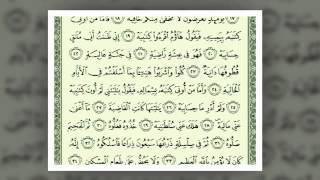 يَوْمَئِذٍ تُعْرَضُونَ لَا تَخْفَىٰ مِنكُمْ خَافِيَةٌ ١٨ فَأَمَّا مَنْ أُوتِيَ
كِتَٰبَهُۥ بِيَمِينِهِۦ فَيَقُولُ هَآؤُمُ ٱقْرَءُوا۟ كِتَٰبِيَهْ ١٩ إِنِّي ظَنَنتُ أَنِّي مُلَٰقٍ
حِسَابِيَهْ ٢٠ فَهُوَ فِي عِيشَةٍ رَّاضِيَةٍ ٢١ فِي جَنَّةٍ عَالِيَةٍ ٢٢
قُطُوفُهَا دَانِيَةٌ ٢٣ كُلُوا۟ وَٱشْرَبُوا۟ هَنِيٓـًٔا بِمَآ أَسْلَفْتُمْ فِي ٱلْأَيَّامِ
ٱلْخَالِيَةِ ٢٤ وَأَمَّا مَنْ أُوتِيَ كِتَٰبَهُۥ بِشِمَالِهِۦ فَيَقُولُ يَٰلَيْتَنِي لَمْ أُوتَ كِتَٰبِيَهْ
٢٥ وَلَمْ أَدْرِ مَا حِسَابِيَهْ ٢٦ يَٰلَيْتَهَا كَانَتِ ٱلْقَاضِيَةَ ٢٧ مَآ أَغْنَىٰ
عَنِّي مَالِيَهْ ٢٨ هَلَكَ عَنِّي سُلْطَٰنِيَهْ ٢٩ خُذُوهُ فَغُلُّوهُ ٣٠ ثُمَّ ٱلْجَحِيمَ
صَلُّوهُ ٣١ ثُمَّ فِي سِلْسِلَةٍ ذَرْعُهَا سَبْعُونَ ذِرَاعًا فَٱسْلُكُوهُ ٣٢ إِنَّهُۥ
كَانَ لَا يُؤْمِنُ بِٱللَّهِ ٱلْعَظِيمِ ٣٣ وَلَا يَحُضُّ عَلَىٰ طَعَامِ ٱلْمِسْكِينِ ٣٤